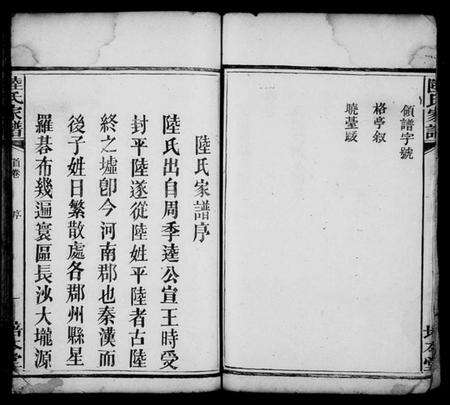 陸氏家譜
領譜字號
格亭叙
曉臺跋
陸氏家譜序
陸氏出自周季逵公宣王時受
封平陸遂從陸姓平陸者古陸
終之墟卽今河南郡也秦漢而
後子姓日繁散處各郡州縣星
羅碁布幾遍寰區長沙大壠源
陸氏家譜
首卷
序
一
培本堂